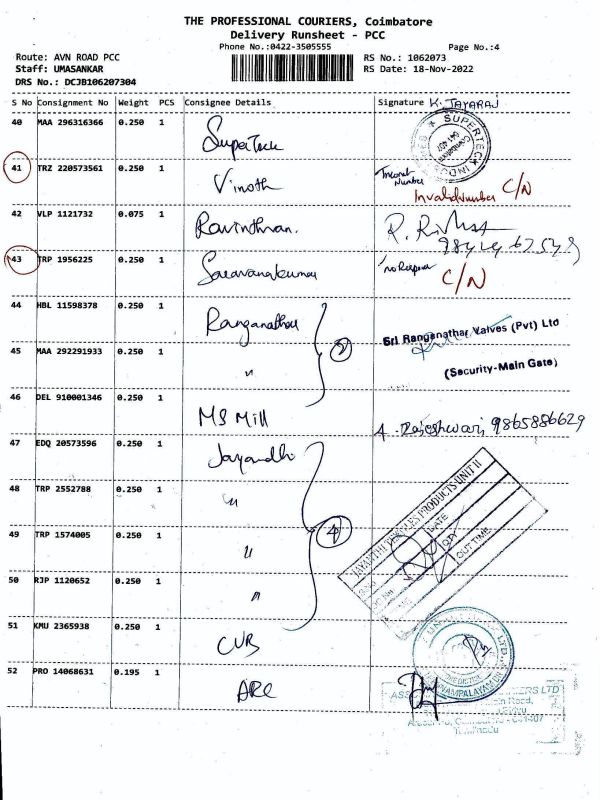 THE PROFESSIONAL COURIERS, Coimbatore
Delivery Runsheet - PCC
Phone No.:0422-3505555 Page No.:4
Route: AVN ROAD PCC RS No.: 1062073
Staff: UMASANKAR RS Date: 18-Nov-2022
DRS No.: DCJB106207304
S No Consignment No Weight PCS Consignee Details Signature K. JAYARAJ
40 MAA 296316366 0.250 1 SuperTech
SUPERTECH
41 TRZ 220573561 0.250 1 Vinoth Number
Invalid Number C/N
42 VLP 1121732 0.075 1 Ravinthran.
43 TRP 1956225 0.250 1 Saravanakumar C/N
44 HBL 11598378 0.250 1 Ranganathar Sri Ranganathar Valves (Pvt) Ltd
45 MAA 292291933 0.250 1 " 2
(Security-Main Gate)
46 DEL 910001346 0.250 1 MS Mill A. Rajeshwari 9865886629
47 EDQ 20573596 0.250 1 Jayandhi
48 TRP 2552788 0.250 1 "
49 TRP 1574005 0.250 1 " 4
50 RJP 1120652 0.250 1 "
PRODUCTS UNIT II
DATE
QTY
OUT TIME
51 KMU 2365938 0.250 1 CUB
52 PRO 14068631 0.195 1 ARC